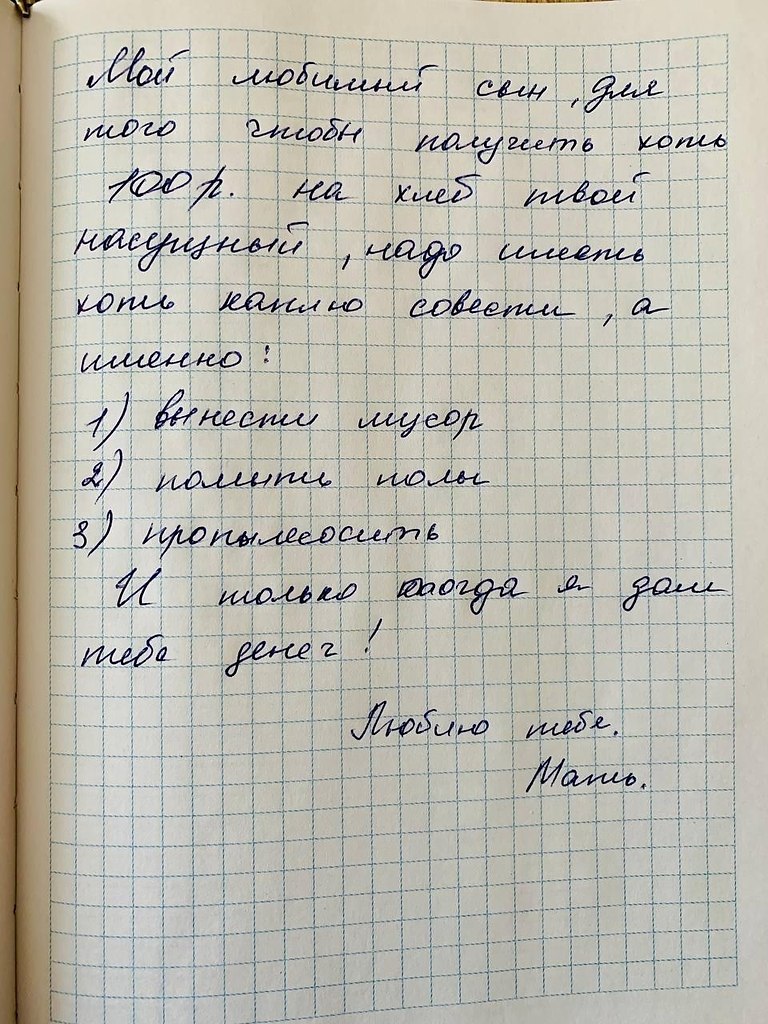 Мой любимый сын, для
того чтобы получить хоть
100р. на хлеб твой
насущный, надо иметь
хоть каплю совести, а
именно:
1) вынести мусор
2) помыть полы
3) пропылесосить
И только тогда я дам
тебе денег!
Люблю тебя.
Мать.